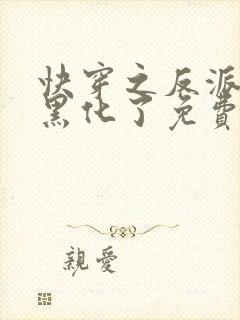 快穿之反派
黑化了免費
親愛